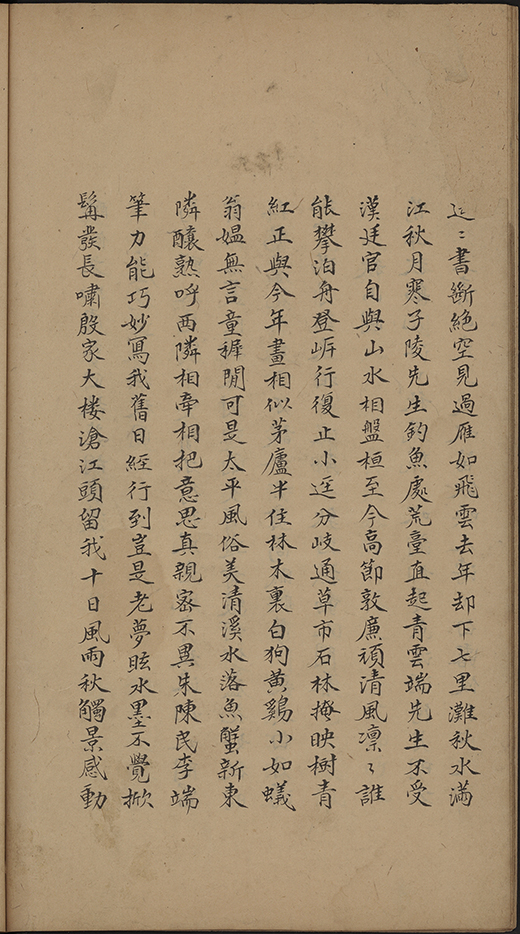 近〻書斷絶空見過雁如飛雲去年却下七里灘秋水滿
江秋月寒子陵先生釣魚處荒臺直起青雲端先生不受
漢廷官自與山水相盤桓至今高節敦廉頑清風凛〻誰
能攀泊舟登岸行復止小逕分岐通草市石林掩映樹青
紅正與今年畫相似茅廬半住林木裏白狗黄鷄小如蟻
翁媪無言童穉閒可是太平風俗美清溪水落魚蟹新東
隣釀熟呼西隣相牽相把意思真親密不異朱陳民李端
筆力能巧妙寫我舊日經行到豈是老夢眩水墨不覺掀
髯發長嘯殷家大楼滄江頭留我十日風雨秋觸景感動